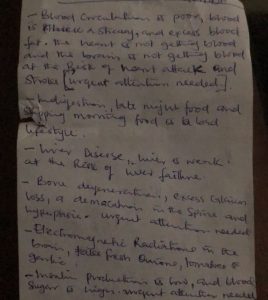 - Blood Circulation is poor, blood
is & sticky, and excess blood
fat. the heart is not getting blood
and the brain is not getting blood
at the Risk of heart attack and
Stroke [urgent attention needed]
- Indigestion, late night food and
morning food is bad
lifestyle.
- Liver Disease, liver is weak.
at the Risk of liver failure.
- Bone degeneration, excess Calcium
loss, a in the Spine and
urgent attention needed
- Electromagnetic Radiations in the
brain, take fresh Onions, tomatoes &
garlic.
- Insulin production is low, and blood
Sugar is high. urgent attention needed